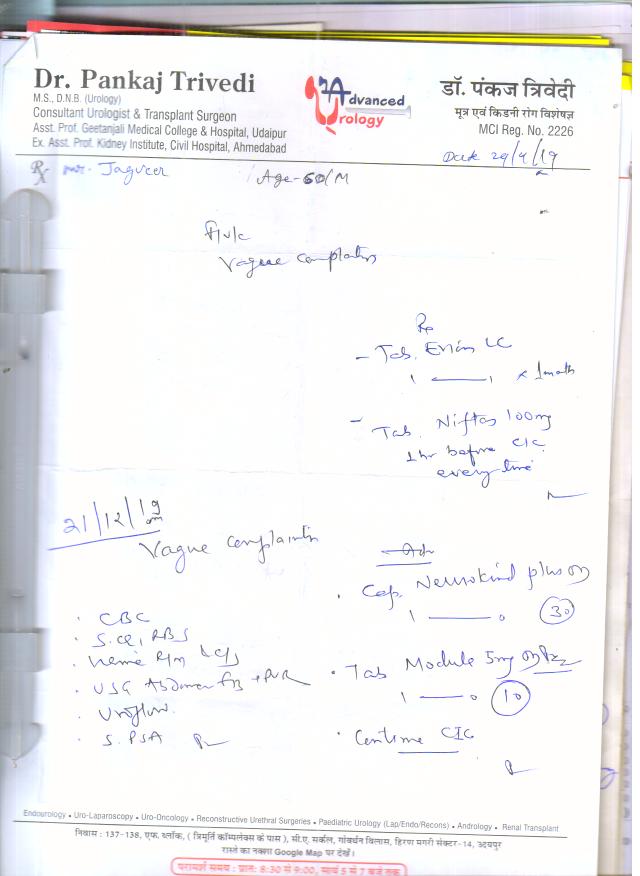 Dr. Pankaj Trivedi
M.S., D.N.B. (Urology)
Consultant Urologist & Transplant Surgeon
Asst. Prof. Geetanjali Medical College & Hospital, Udaipur
Ex. Asst. Prof. Kidney Institute, Civil Hospital, Ahmedabad
Advanced
Urology
डॉ. पंकज त्रिवेदी
मूत्र एवं किडनी रोग विशेषज्ञ
MCI Reg. No. 2226
Date 29/4/19
Rx Mr. Jagveer Age-60/M
Vague complaints
Rx
- Tab.
1 — 1 x 1 month
- Tab. Niftas 100mg
1 hr before CIC
every time
21/12/19
Vague complaints
Adv
· Cap. Neurokind plus
1 — 0 30
· CBC
· S.Cr, RBS
· Urine R/m & C/S
· USG Abdomen + PVR
· Uroflow.
· S. PSA
· Tab Module 5mg
1 — 0 10
· Continue CIC
Endourology • Uro-Laparoscopy • Uro-Oncology • Reconstructive Urethral Surgeries • Paediatric Urology (Lap/Endo/Recons) • Andrology • Renal Transplant
निवास : 137-138, एफ. ब्लॉक, ( त्रिमूर्ति कॉम्पलेक्स के पास ), सी.ए. सर्कल, गोवर्धन विलास, हिरण मगरी सेक्टर-14, उदयपुर
रास्ते का नक्शा Google Map पर देखें।
परामर्श समय : प्रातः 8:30 से 9:00, सायं 5 से 7 बजे तक